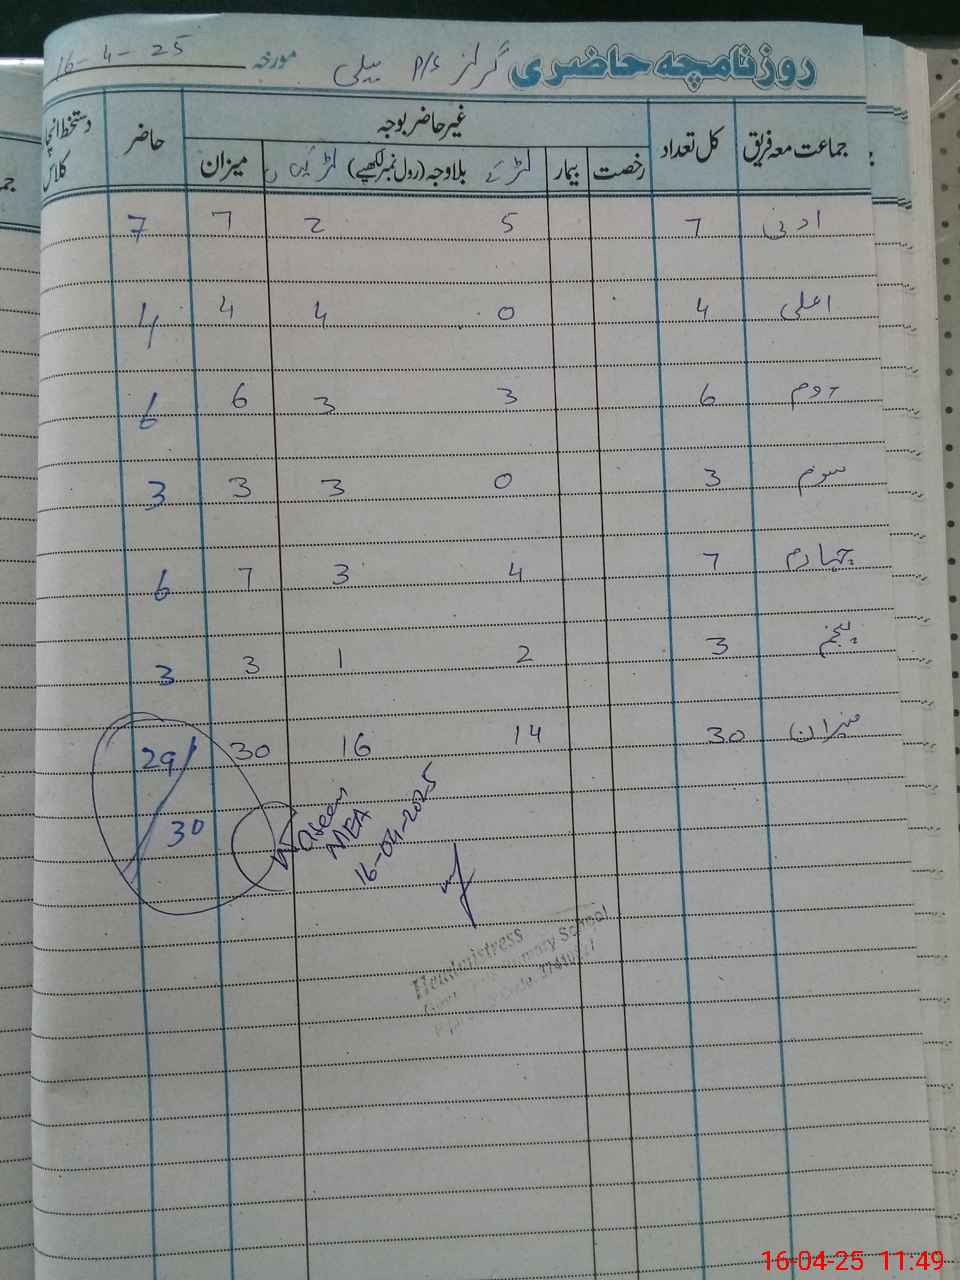 روزنامچہ حاضری گرلز P/S پیلی مورخہ 16-4-25
جماعت معہ فریق کل تعداد غیر حاضر بوجہ حاضر دستخط انچا کلاس
رخصت بیمار لڑکے بلاوجہ (رول نمبر لکھیے) لڑکیاں میزان
ادنی 7 5 2 7 7
اعلی 4 0 4 4 4
دوم 6 3 3 6 6
سوم 3 0 3 3 3
چہارم 7 4 3 7 6
پنجم 3 2 1 3 3
میزان 30 14 16 30 29/
30
Waseem
MEA
16-04-2025
Headmistress
Primary School
16-04-25 11:49